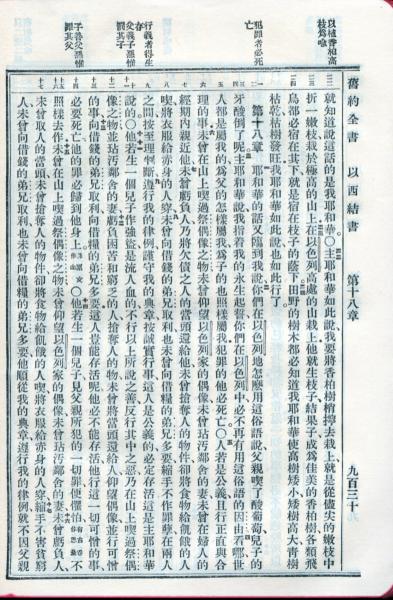 以植香柏高枝爲喻
犯罪者必死亡
行義者得生存
父義子惡惟罰其子
子善父惡惟罪其父
舊約全書 以西結書 第十八章 九百三十
就知道說這話的是我耶和華○主耶和華如此說我要將香柏樹梢擰去栽上就是從儘尖的嫩枝中
折一嫩枝栽於極高的山上在以色列高處的山栽上他就生枝子結果子成爲佳美的香柏樹各類飛
鳥都必宿在其下就是宿在枝子的蔭下田野的樹木都必知道我耶和華使高樹矮小矮樹高大青樹
枯乾枯樹發旺我耶和華如此說也如此行了
第十八章 耶和華的話又臨到我說你們在以色列地怎麼用這俗語說父親喫了酸葡萄兒子的
牙酸倒了呢主耶和華說我指着我的永生起誓你們在以色列中必不再有用這俗語的因由看哪世
人都是屬我的爲父的怎樣屬我爲子的也照樣屬我犯罪的他必死亡○人若是公義且行正直與合
理的事未曾在山上喫過祭偶像之物未曾仰望以色列家的偶像未曾玷污鄰舍的妻未曾在婦人的
經期內親近他未曾虧負人乃將欠債之人的當頭還給他未曾搶奪人的物件却將食物給飢餓的人
喫將衣服給赤身的人穿未曾向借錢的弟兄取利也未曾向借糧的弟兄多要縮手不作罪孽在兩人
之間按至理判斷遵行我的律例謹守我的典章按誠實行事這人是公義的必定存活這是主耶和華
說的○他若生一個兒子作強盜是流人血的不行以上所說之善反行其中之惡乃在山上喫過祭偶
像之物並玷污鄰舍的妻虧負困苦和窮乏的人搶奪人的物未曾將當頭還給人仰望偶像並行可憎
的事向借錢的弟兄取利向借糧的弟兄多要這人豈能存活呢他必不能存活他行這一切可憎的事
必要死亡他的罪必歸到他身上罪原文作血○他若生一個兒子見父親所犯的一切罪便懼怕有古卷作思量不
照樣去作未曾在山上喫過祭偶像之物未曾仰望以色列家的偶像未曾玷污鄰舍的妻未曾虧負人
未曾取人的當頭未曾搶奪人的物件却將食物給飢餓的人喫將衣服給赤身的人穿縮手不害貧窮
人未曾向借錢的弟兄取利也未曾向借糧的弟兄多要他順從我的典章遵行我的律例就不因父親